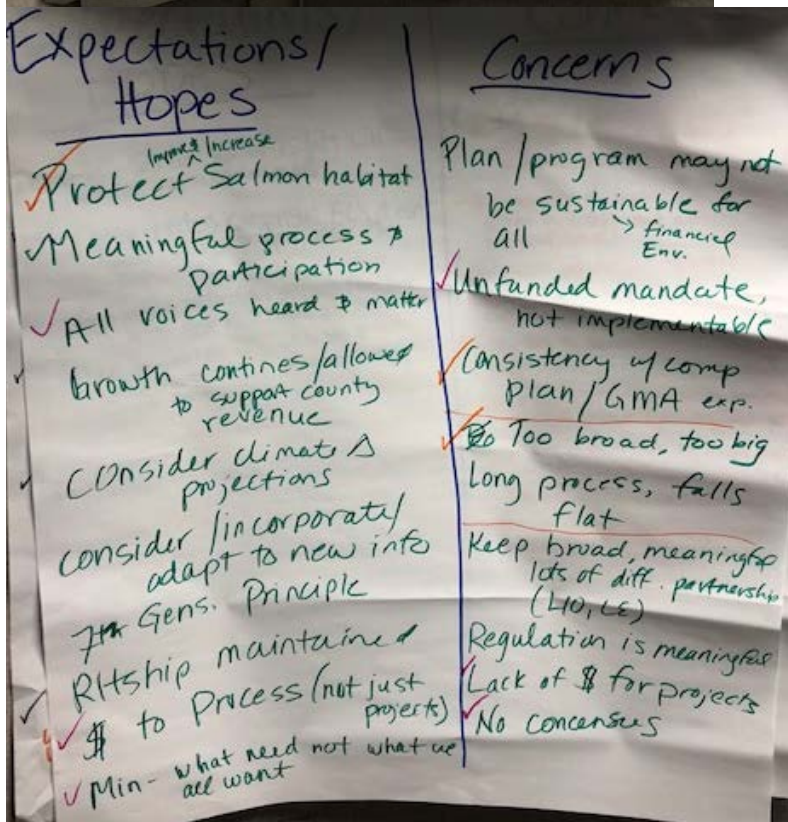 Expectations/
Hopes
Improve & Increase
Protect ^ Salmon habitat
Meaningful process &
participation
All voices heard & matter
Growth contines/allowed
to support county
revenue
Consider climate Δ
projections
Consider/incorporate/
adapt to new info
7th Gens. Principle
RHship maintained
$ to Process (not just
projects)
Min - what need not what we
all want
Concerns
Plan/program may not
be sustainable for
all
→ financial
Env.
Unfunded mandate,
not implementable
Consistency w/ comp
plan/GMA exp.
Too broad, too big
Long process, falls
flat
Keep broad, meaningful
lots of diff. partnership
(LIO, LE)
Regulation is meaningful
Lack of $ for projects
No concensus